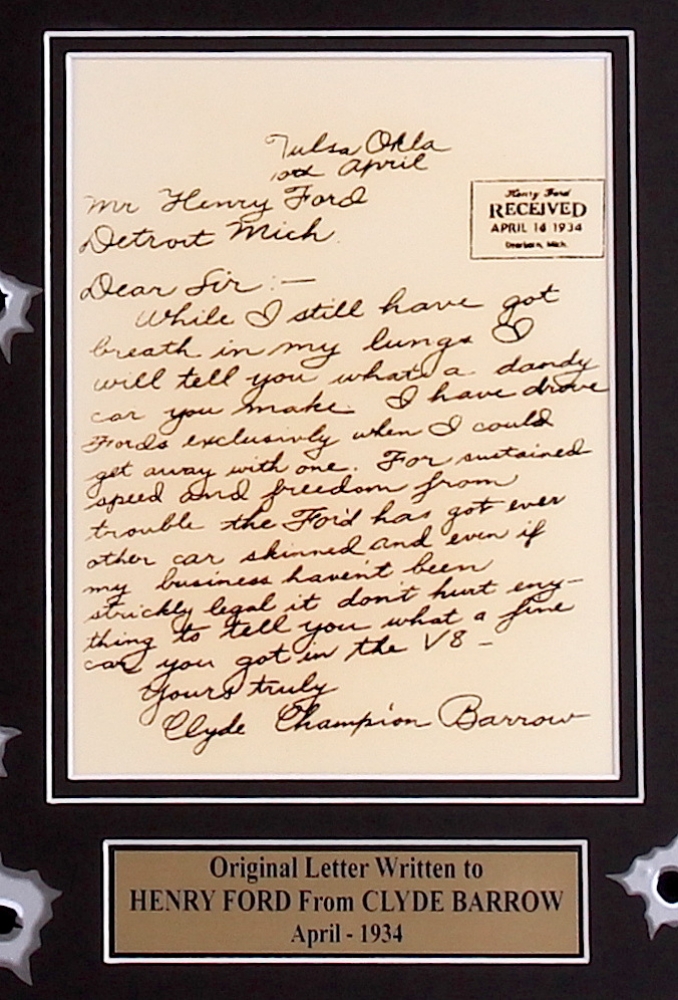 Tulsa Okla
10th April
Mr Henry Ford
Detroit Mich.
Henry Ford
RECEIVED
APRIL 14 1934
Dearborn, Mich.
Dear Sir:—
While I still have got
breath in my lungs I
will tell you what a dandy
car you make. I have drove
Fords exclusivly when I could
get away with one. For sustained
speed and freedom from
trouble the Ford has got ever
other car skinned and even if
my business haven't been
strickly legal it don't hurt eny-
thing to tell you what a fine
car you got in the V8 -
Yours truly
Clyde Champion Barrow
Original Letter Written to
HENRY FORD From CLYDE BARROW
April - 1934